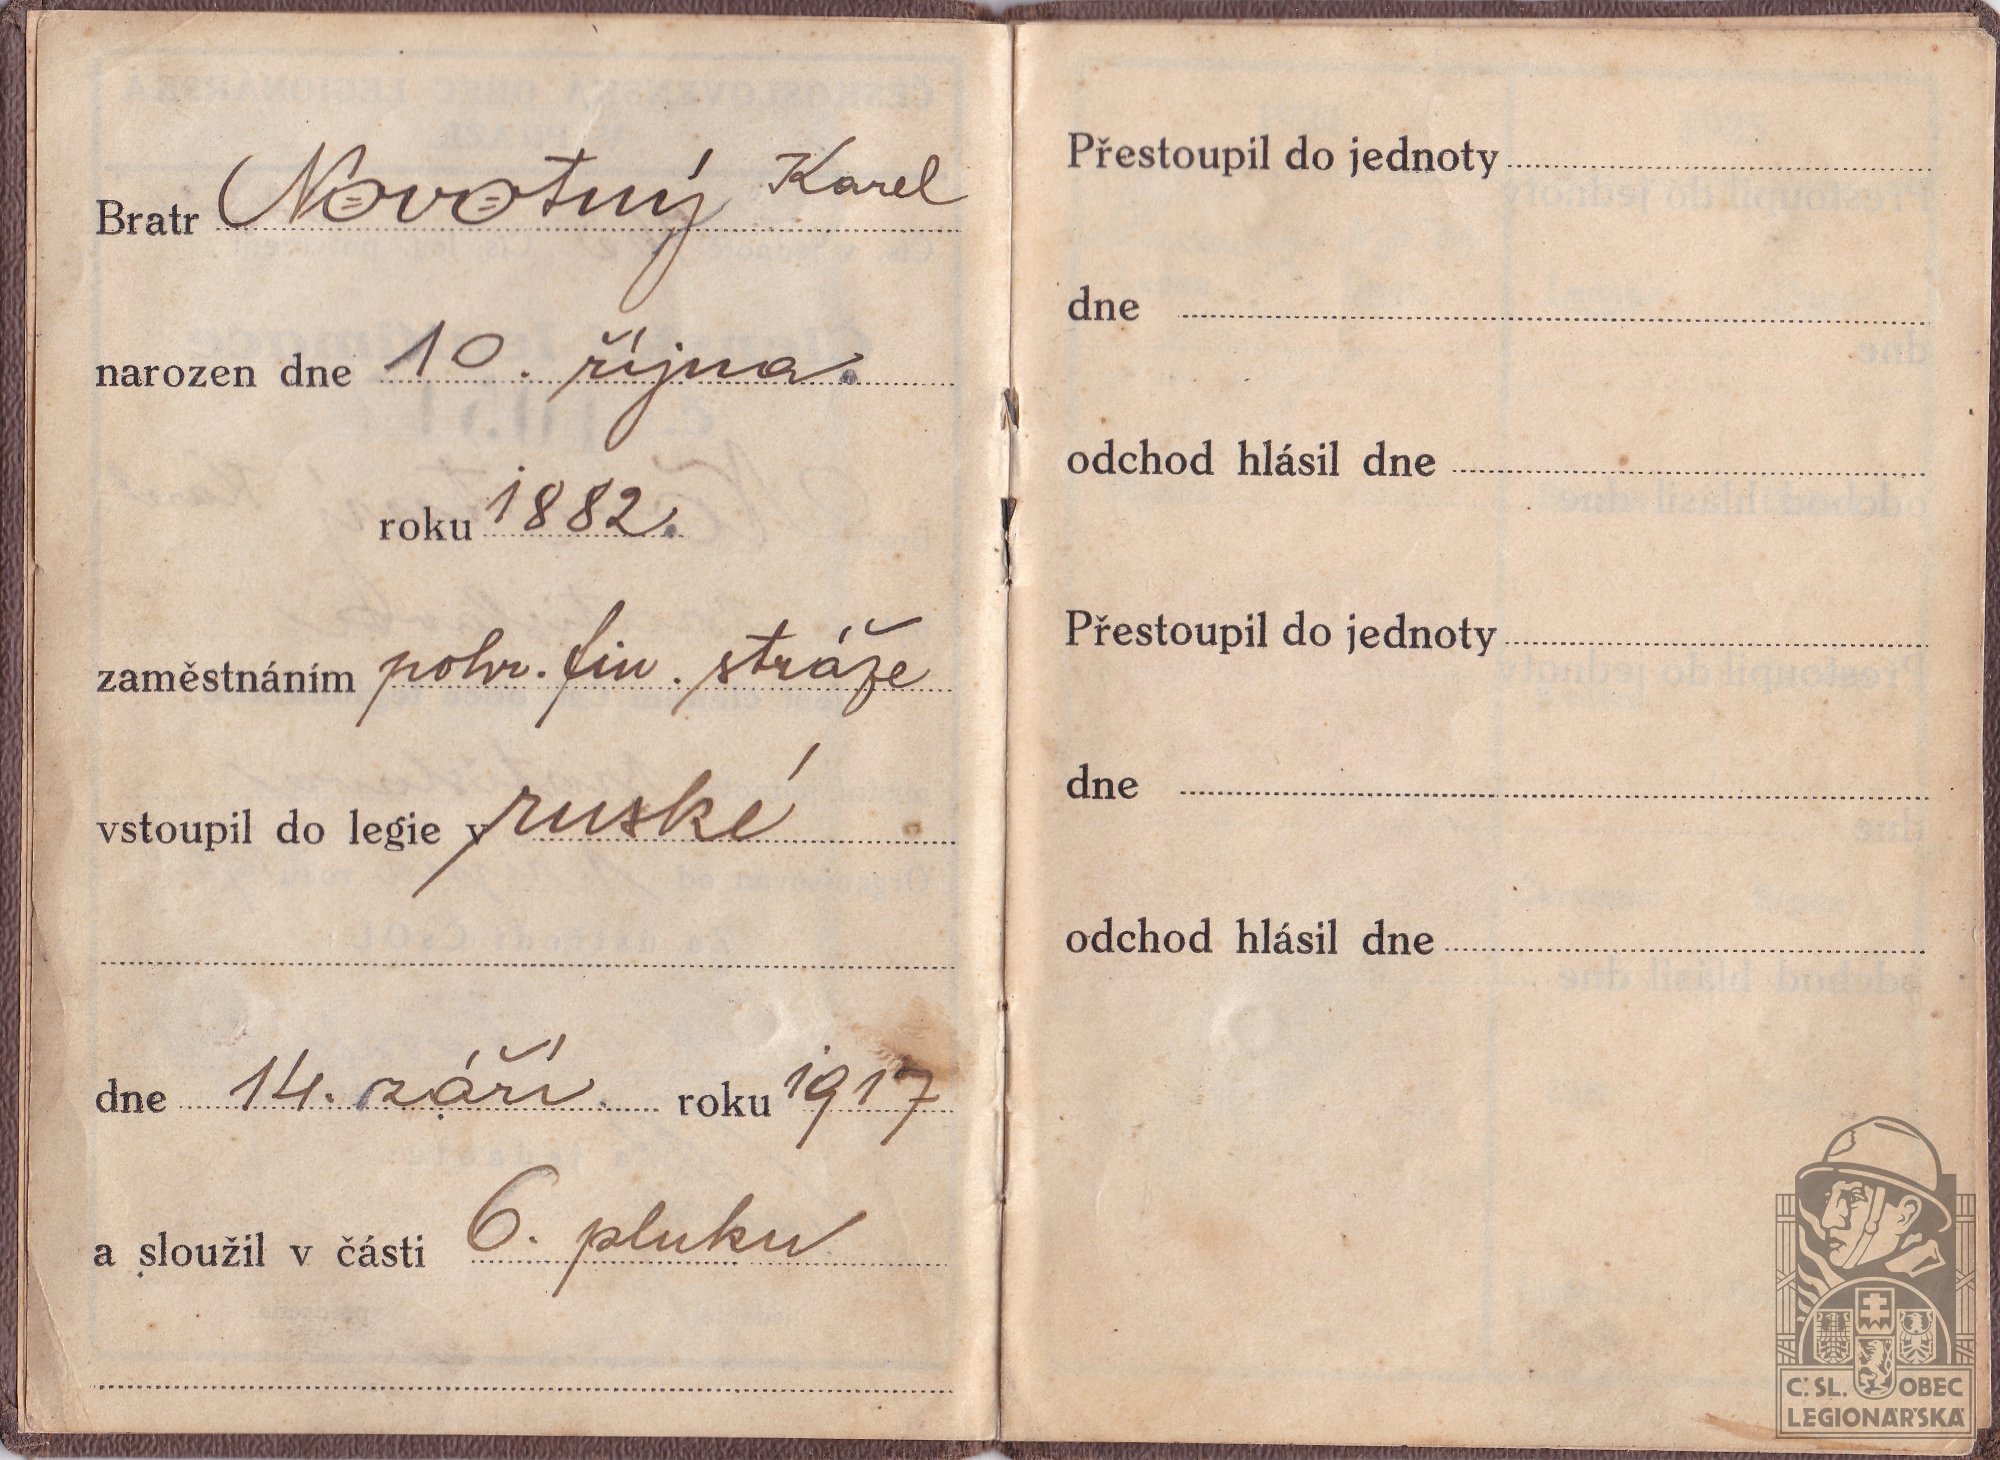 Bratr Novotný Karel
narozen dne 10. října.
roku 1882.
zaměstnáním pohr. fin. stráže
vstoupil do legie v ruské
dne 14. září. roku 1917
a sloužil v části 6. pluku
Přestoupil do jednoty
dne
odchod hlásil dne
Přestoupil do jednoty
dne
odchod hlásil dne
Č. SL. OBEC
LEGIONÁŘSKÁ